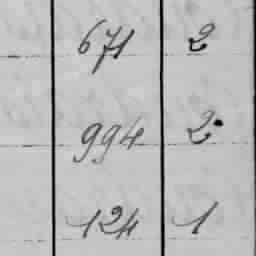 671 2
994 2
124 1